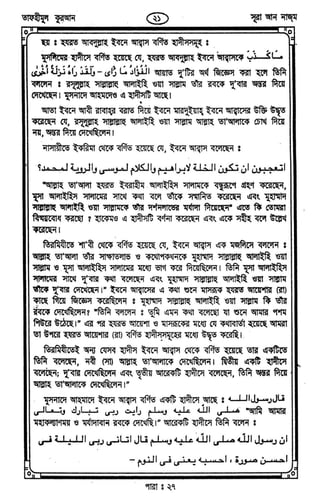 তাফহীমুল কুরআন
২১
সূরা আন নাজম
ছয় ঃ হযরত আবদুল্লাহ ইবনে আব্বাস বর্ণিত হাদীসসমূহ ঃ
মুসলিমের হাদীসে বর্ণিত হয়েছে যে, হযরত আবদুল্লাহ ইবনে আব্বাসকে مَا كَذَبَ
الْفُؤَادُ مَا رَاٰى – وَلَقَدْ رَاٰهُ نَزْلَةً اُخْرٰى আয়াত দু'টির অর্থ জিজ্ঞেস করা হলে তিনি
বলেন ঃ রসূলুল্লাহ সাল্লাল্লাহু আলাইহি ওয়া সাল্লাম তাঁর রবকে দু'বার অন্তর দিয়ে
দেখেছেন। মুসনাদে আহমদেও এ হাদীসটি আছে।
আতা ইবনে আবী রাবাহর বরাত দিয়ে ইবনে মারদুইয়াহ ইবনে আব্বাসের উক্তি উদ্ধৃত
করেছেন যে, রসূলুল্লাহ সাল্লাল্লাহু আলাইহি ওয়া সাল্লাম আল্লাহ তা'আলাকে চোখ দিয়ে
নয়, অন্তর দিয়ে দেখেছিলেন।
নাসায়ীতে ইকরিমা থেকে বর্ণিত হয়েছে যে, ইবনে আব্বাস বলেছেন ঃ
اتعجبون ان تكون الخلة لابراهيم والكلام لموسى والروية لمحمد؟
"আল্লাহ তা'আলা হযরত ইবরাহীম আলাইহিস সালামকে বন্ধুরূপে গ্রহণ করেছেন,
মূসা আলাইহিস সালামের সাথে কথা বলে তাঁকে সম্মানিত করেছেন এবং মুহাম্মাদ
সাল্লাল্লাহু আলাইহি ওয়া সাল্লামকে তাঁর দর্শনলাভের মর্যাদা দিয়েছেন" এতে কি তোমরা
বিস্ময়বোধ করছো ? হাকেমও এ হাদীসটি বর্ণনা করেছেন এবং একে সহীহ বলে উল্লেখ
করেছেন।
তিরমিযীতে শা'বী থেকে বর্ণিত হয়েছে যে, ইবনে আব্বাস এক মজলিসে বললেন ঃ
আল্লাহ তা'আলা তাঁর সাক্ষাতলাভ ও কথোপকথনকে মুহাম্মাদ সাল্লাল্লাহু আলাইহি ওয়া
সাল্লাম ও মূসা আলাইহিস সালামের মধ্যে ভাগ করে দিয়েছিলেন। তিনি মূসা আলাইহিস
সালামের সাথে দু'বার কথা বলেছেন এবং মুহাম্মাদ সাল্লাল্লাহু আলাইহি ওয়া সাল্লাম
তাঁকে দু'বার দেখেছেন।" ইবনে আব্বাসের এ কথা শুনে মাসরূক হযরত আয়েশার (রা)
কাছে গিয়ে জিজ্ঞেস করেছিলেন ঃ মুহাম্মাদ সাল্লাল্লাহু আলাইহি ওয়া সাল্লাম কি তাঁর
রবকে দেখেছিলেন? "তিনি বললেন ঃ তুমি এমন কথা বলেছো যা শুনে আমার পশম
শিউরে উঠেছে।" এর পর হযরত আয়েশা ও মাসরূকের মধ্যে যে কথাবার্তা হয়েছে আমরা
তা উপরে হযরত আয়েশার (রা) বর্ণিত হাদীসসমূহের মধ্যে উদ্ধৃত করেছি।
তিরমিযীতেই অন্য যেসব হাদীস ইবনে আব্বাস থেকে বর্ণিত হয়েছে তার একটিতে
তিনি বলেছেন, নবী (সা) আল্লাহ তা'আলাকে দেখেছিলেন। দ্বিতীয় একটি হাদীসে
বলেছেন; দু'বার দেখেছিলেন এবং তৃতীয় আরেকটি হাদীসে বলেছেন, তিনি অন্তর দিয়ে
আল্লাহ তা'আলাকে দেখেছিলেন।"
মুসনাদে আহমাদে ইবনে আব্বাস বর্ণিত একটি হাদীসে আছে ঃ قال رسول الله
صلى الله عليه وسلم رايت ربى تبارك وتعالى "আমি আমার
মহাকল্যাণময় ও মর্যাদাবান রবকে দেখেছি।" আরেকটি হাদীসে তিনি বলেন ঃ
ان رسول الله صلى الله عليه وسلم قال اتانى ربى الليلة فى
احسن صورة ، احسبه يعنى فى النوم –
পারা ঃ ২৭